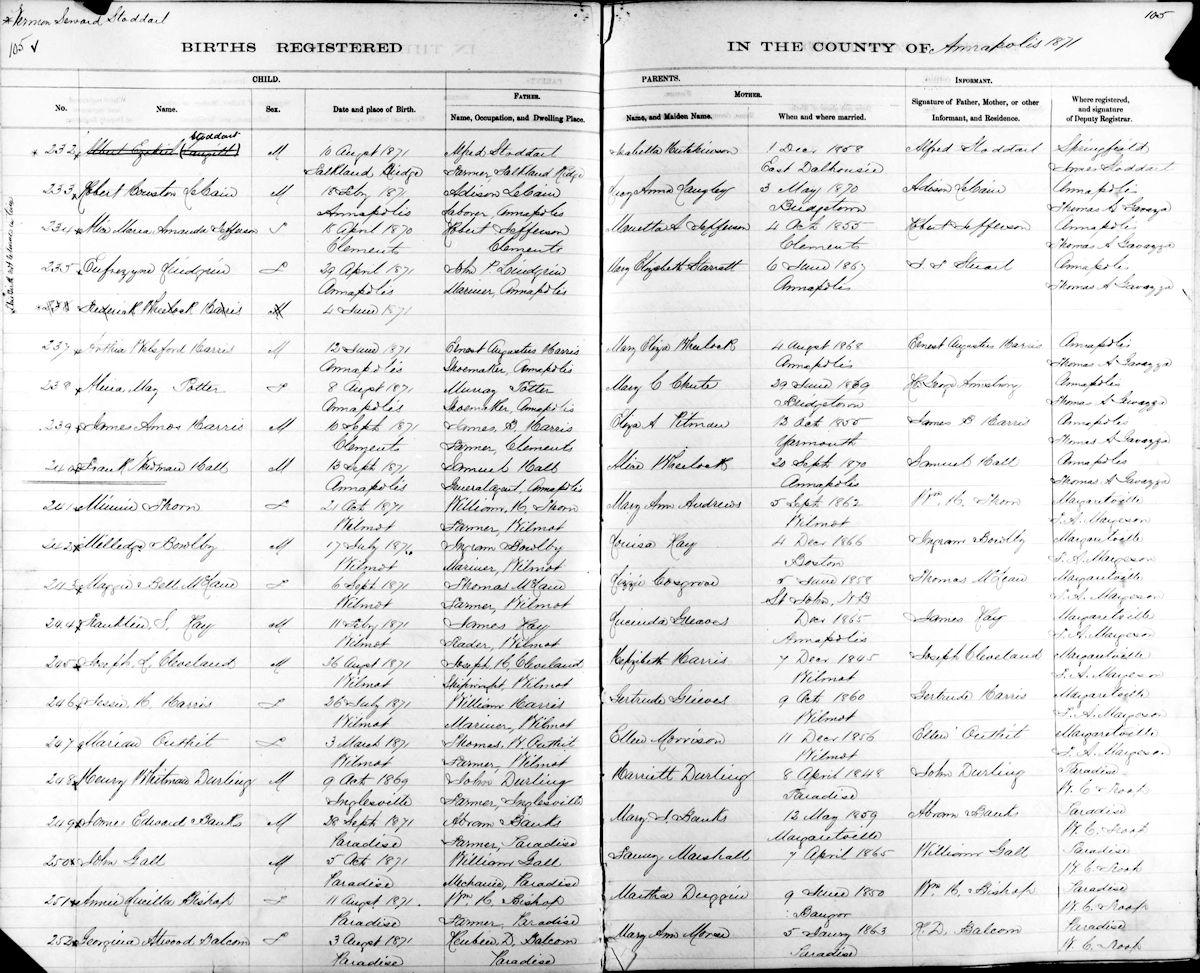 * Vernon Seward Stoddart
105
BIRTHS REGISTERED
IN THE COUNTY OF Annapolis 1871
105
CHILD.
PARENTS.
No.
Name.
Sex.
Date and place of Birth.
FATHER.
Name, Occupation, and Dwelling Place.
MOTHER.
Name, and Maiden Name.
When and where married.
INFORMANT.
Signature of Father, Mother, or other Informant, and Residence.
Where registered, and signature of Deputy Registrar.
Stoddart
232 Albert Ezekiel M 10 Augst 1871 Alfred Stoddart Isabella Hutchinson 1 Decr 1858 Alfred Stoddart Springfield
Falkland Ridge Farmer, Falkland Ridge East Dalhousie Stoddart
233 Robert Huston LeCain M 18 Feby 1871 Adison LeCain Anna Langley 3 May 1870 Adison LeCain Annapolis
Annapolis Laborer, Annapolis Bridgetown Thomas A Gavazza
234 Maria Amanda Jefferson F 18 April 1870 Robert Jefferson Manetta S Jefferson 4 Oct 1855 Robert Jefferson Annapolis
Clements Clements Clements Thomas A Gavazza
235 F 29 April 1871 John P. Mary Elizabeth Starratt 6 June 1867 Annapolis
Annapolis Mariner, Annapolis Annapolis Thomas A Gavazza
Frederick Wheelock Harris M 4 June 1871
237 Arthur Harris M 12 June 1871 Ernest Augustus Harris Mary Eliza Wheelock 4 Augst 1868 Ernest Augustus Harris Annapolis
Annapolis Shoemaker, Annapolis Annapolis Thomas A Gavazza
238 May Potter F 8 Augst 1871 Murray Potter Mary C Chute 29 June 1869 Annapolis
Annapolis Shoemaker, Annapolis Bridgetown Thomas A Gavazza
239 James Amos Harris M 10 Septr 1871 James B Harris Eliza A Pitman 13 Oct 1855 James B Harris Annapolis
Clements Farmer, Clements Yarmouth Thomas A Gavazza
240 Frank Hall M 13 Septr 1871 Samuel Hall Alice Wheelock 20 Septr 1870 Samuel Hall Annapolis
Annapolis General agent, Annapolis Annapolis Thomas A Gavazza
241 Minnie Thorn F 21 Oct 1871 William H Thorn Mary Ann Andrews 5 Septr 1862 Wm. H. Thorn Margaretville
Wilmot Farmer, Wilmot Wilmot T. A. Margeson
242 Milledge Bowlby M 17 July 1871 Ingram Bowlby Louisa Kay 4 Decr 1866 Ingram Bowlby Margaretville
Wilmot Mariner, Wilmot Boston T. A. Margeson
243 Maggie Bell McLean F 6 Septr 1871 Thomas McLean Lizzie Cosgrove 5 June 1858 Thomas McLean Margaretville
Wilmot Farmer, Wilmot St John, NB T. A. Margeson
244 Franklin S. Kay M 11 Feby 1871 James Kay Lucinda Gleaves Decr 1865 James Kay Margaretville
Wilmot Trader, Wilmot Annapolis T. A. Margeson
245 Joseph L Cleveland M 26 Augst 1871 Joseph H Cleveland Hepzibeth Harris 7 Decr 1845 Joseph Cleveland Margaretville
Wilmot Shipwright, Wilmot Wilmot T. A. Margeson
246 Jessie H. Harris F 26 July 1871 William Harris Gertrude 9 Oct 1860 Gertrude Harris Margaretville
Wilmot Mariner, Wilmot Wilmot T. A. Margeson
247 Marian Outhit F 3 March 1871 Thomas W Outhit Ellen Morrison 11 Decr 1856 Ellen Outhit Margaretville
Wilmot Farmer Wilmot Wilmot T. A. Margeson
248 Henry Whitman Durling M 9 Oct 1869 John Durling Harriett Durling 8 April 1848 John Durling Paradise
Inglesville Farmer, Inglesville Paradise W. C. Troop
249 James Edward Banks M 28 Septr 1871 Abram Banks Mary Banks 12 May 1859 Abram Banks Paradise
Paradise Farmer, Paradise Margaretville W. C. Troop
250 John Gall M 5 Oct 1871 William Gall Fanny Marshall 7 April 1865 William Gall Paradise
Paradise Mechanic, Paradise W. C. Troop
251 Annie Bishop F 11 Augst 1871 Wm. H. Bishop Martha 9 June 1850 Wm. H. Bishop Paradise
Paradise Farmer, Paradise Bangor W. C. Troop
252 Georgina Atwood Balcom F 3 Augst 1871 Reuben D. Balcom Mary Ann Morse 5 1863 R. D. Balcom Paradise
Paradise Paradise Paradise W. C. Troop